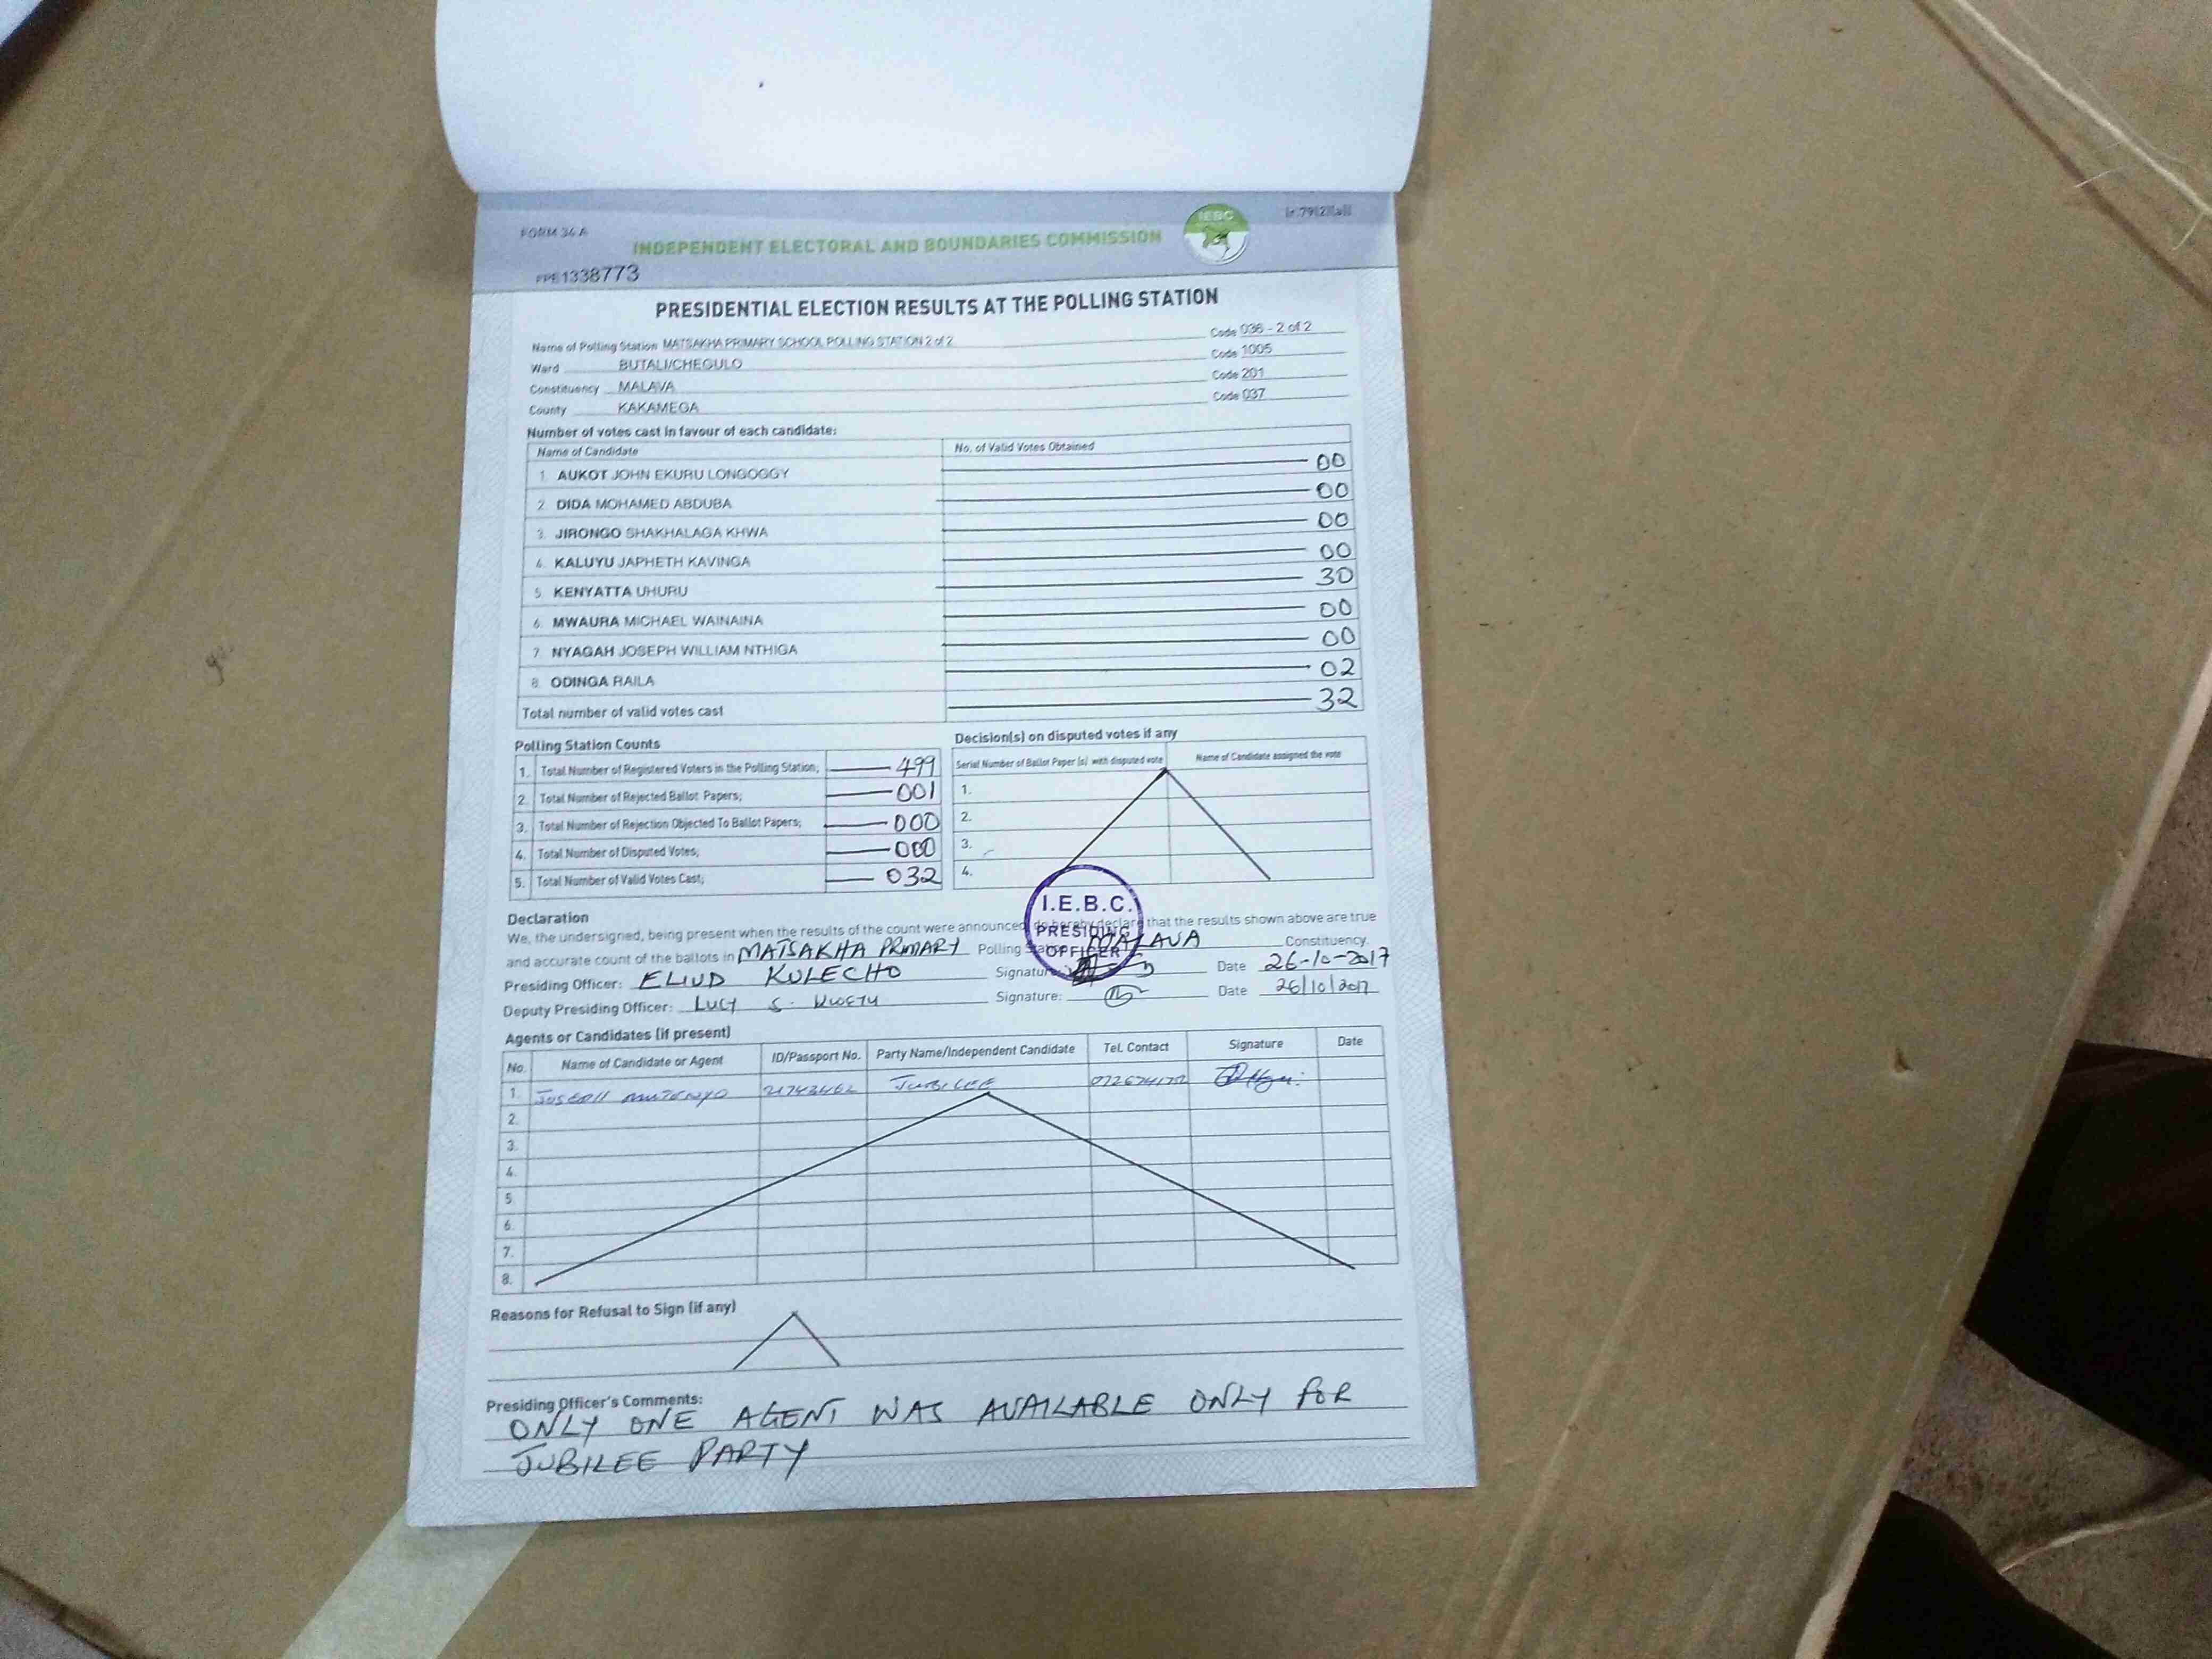 FORM 34 A
INDEPENDENT ELECTORAL AND BOUNDARIES COMMISSION
IEBC
1338773
PRESIDENTIAL ELECTION RESULTS AT THE POLLING STATION
Name of Polling Station MATSAKHA PRIMARY SCHOOL POLLING STATION 2 of 2 Code 036 - 2 of 2
Ward BUTALI/CHEGULO Code 1005
Constituency MALAVA Code 201
County KAKAMEGA Code 037
Number of votes cast in favour of each candidate:
Name of Candidate No. of Valid Votes Obtained
1. AUKOT JOHN EKURU LONGOGGY 00
2. DIDA MOHAMED ABDUBA 00
3. JIRONGO SHAKHALAGA KHWA 00
4. KALUYU JAPHETH KAVINGA 00
5. KENYATTA UHURU 30
6. MWAURA MICHAEL WAINAINA 00
7. NYAGAH JOSEPH WILLIAM NTHIGA 00
8. ODINGA RAILA 02
Total number of valid votes cast 32
Polling Station Counts
1. Total Number of Registered Voters in the Polling Station; 499
2. Total Number of Rejected Ballot Papers; 001
3. Total Number of Rejection Objected To Ballot Papers; 000
4. Total Number of Disputed Votes; 000
5. Total Number of Valid Votes Cast; 032
Decision(s) on disputed votes if any
Serial Number of Ballot Paper (s) with disputed vote Name of Candidate assigned the vote
1.
2.
3.
4.
I.E.B.C.
PRESIDING
OFFICER
Declaration
We, the undersigned, being present when the results of the count were announced, do hereby declare that the results shown above are true
and accurate count of the ballots in MATSAKHA PRIMARY Polling Station MALAVA Constituency.
Presiding Officer: ELIUD KULECHO Signature: Date 26-10-2017
Deputy Presiding Officer: LUCY S. Signature: Date 26/10/2017
Agents or Candidates (if present)
No. Name of Candidate or Agent ID/Passport No. Party Name/Independent Candidate Tel. Contact Signature Date
1. JOSEPH JUBILEE
2.
3.
4.
5.
6.
7.
8.
Reasons for Refusal to Sign (if any)
Presiding Officer's Comments:
ONLY ONE AGENT WAS AVAILABLE ONLY FOR
JUBILEE PARTY